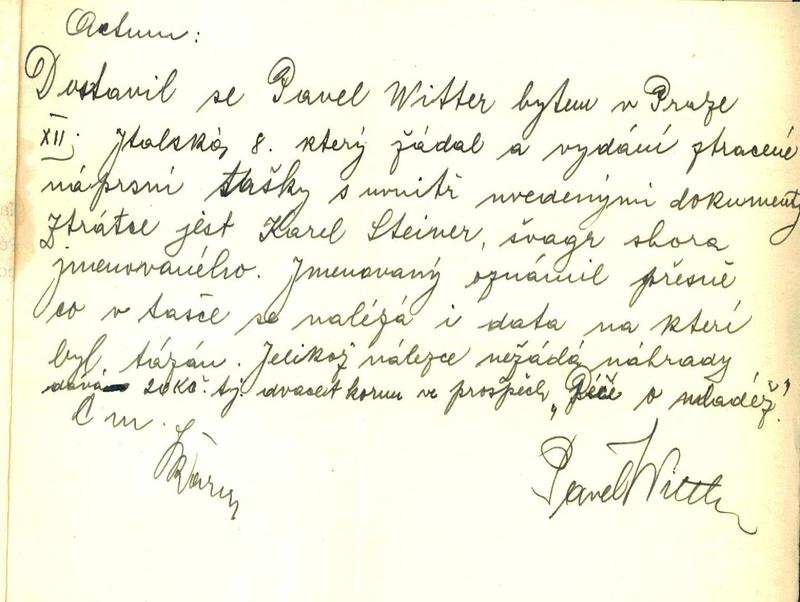 Actum:
Dostavil se Pavel Witter bytem v Praze
XII. Italská, 8. který žádal a vydání ztracené
náprsní tašky s uvnitř uvedenými dokumenty
Ztrátce jest Karel Steiner, švagr shora
jmenovaného. Jmenovaný oznámil přesně
co v tašce se nalézá i data na kterí
byl tázán. Jelikož nálezce nežádá náhrady
dává 20Kč. tj. dvacet korun ve prospěch „Péče o mládež."
Č m.
Pavel Witter